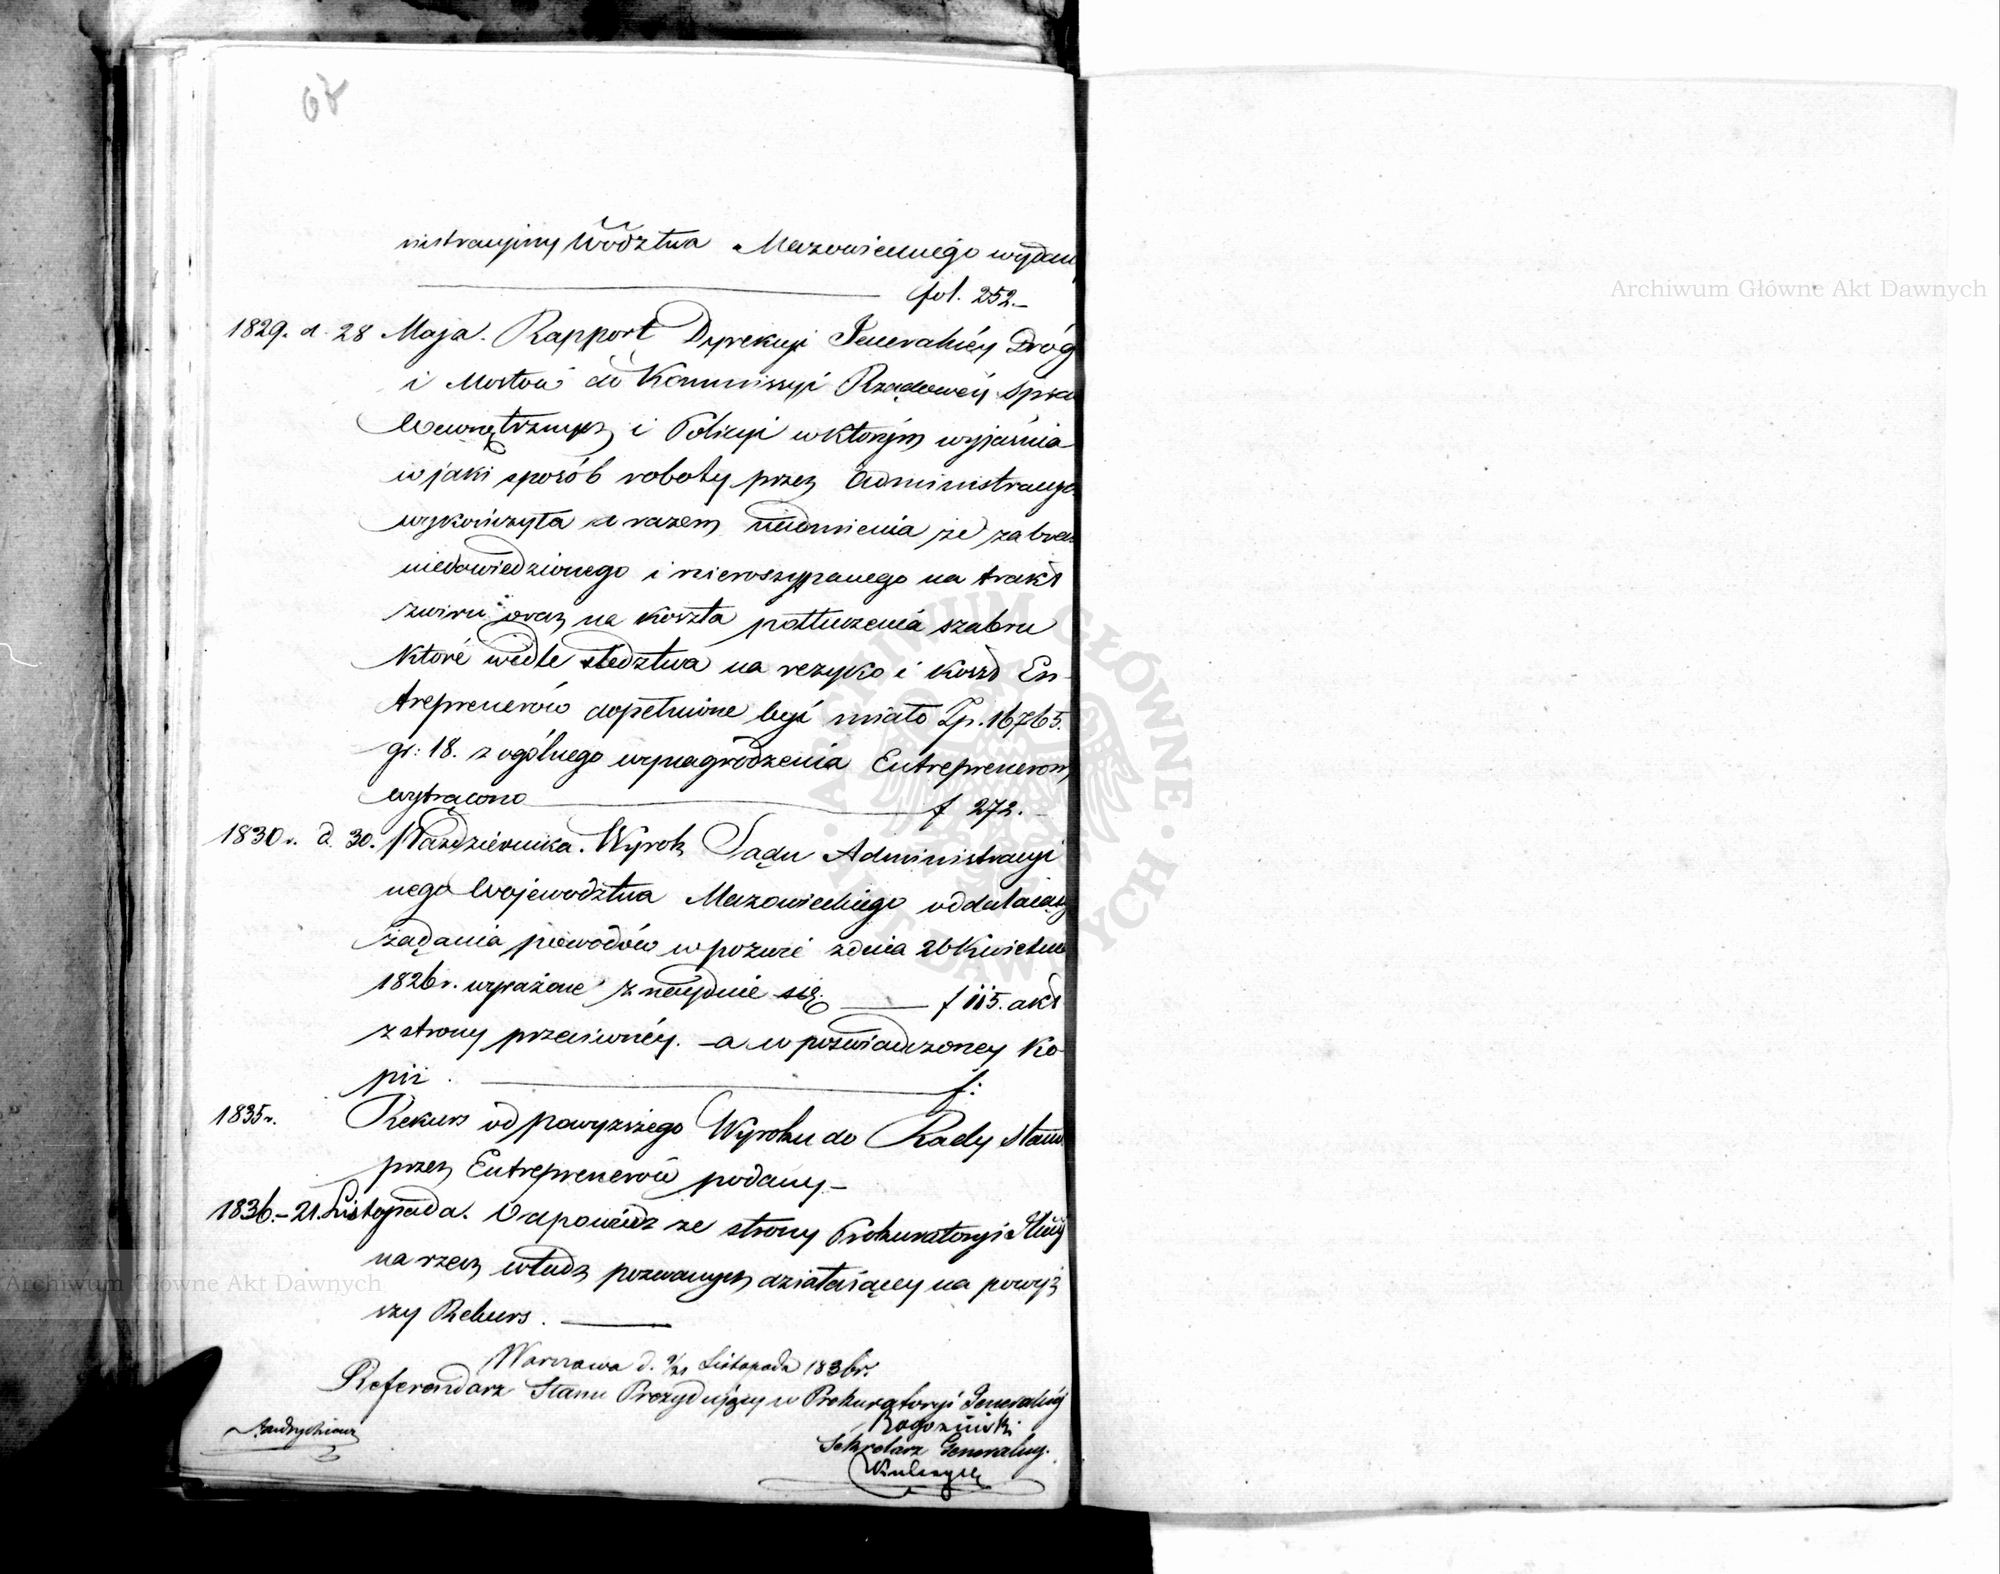 67
nistracyiny Wodztwa Mazowieckiego wydan
fol. 252.
1829. d. 28 Maja. Rapport Dyrekcyi Jeneralnéy Dróg
i Mostow do Kommissyi Rządowéy Spra
Wewnętrznych i Policyi w ktorym wyjaśnia
w jaki sposób roboty przez Administracya
wykończyła a razem nadmienia że za brak
niedowiedzionego i nierozsypanego na trakt
zwiru oraz na koszta potłuczenia szabru
które wedle śledztwa na rezyko i koszt En-
trepreneròw dopełnione być miało Zp. 16765.
gr: 18. z ogólnego wynagrodzenia Entreprenerom
wytrącono f 272.
1830 r. d. 30. Pazdziernika. Wyrok Sądu Administracyi
nego Wojewodztwa Mazowieckiego oddalaiący
żądania powodów w pozwie z dnia 26 Kwietnia
1826 r. wyrażone znayduie się. f 115. akt
z strony przeciwnéy. - a w poświadczoney Ko-
pii. f:
1835 r. Rekurs od powyzszego Wyroku do Rady Stanu
przez Entreprenerów podany -
1836. - 21. Listopada. Odpowiedz ze strony Prokuratoryi
na rzecz władz pozwanych działaiącey na powyż
szy Rekurs.
Warszawa d. 9/21 Listopada 1836 r.
Referendarz Stanu Prezydujący w Prokuratoryi Generalnéj
Rogoziński
Sekretarz Generalny.
Archiwum Główne Akt Dawnych
Archiwum Główne Akt Dawnych
ARCHIWUM GŁÓWNE AKT DAWNYCH